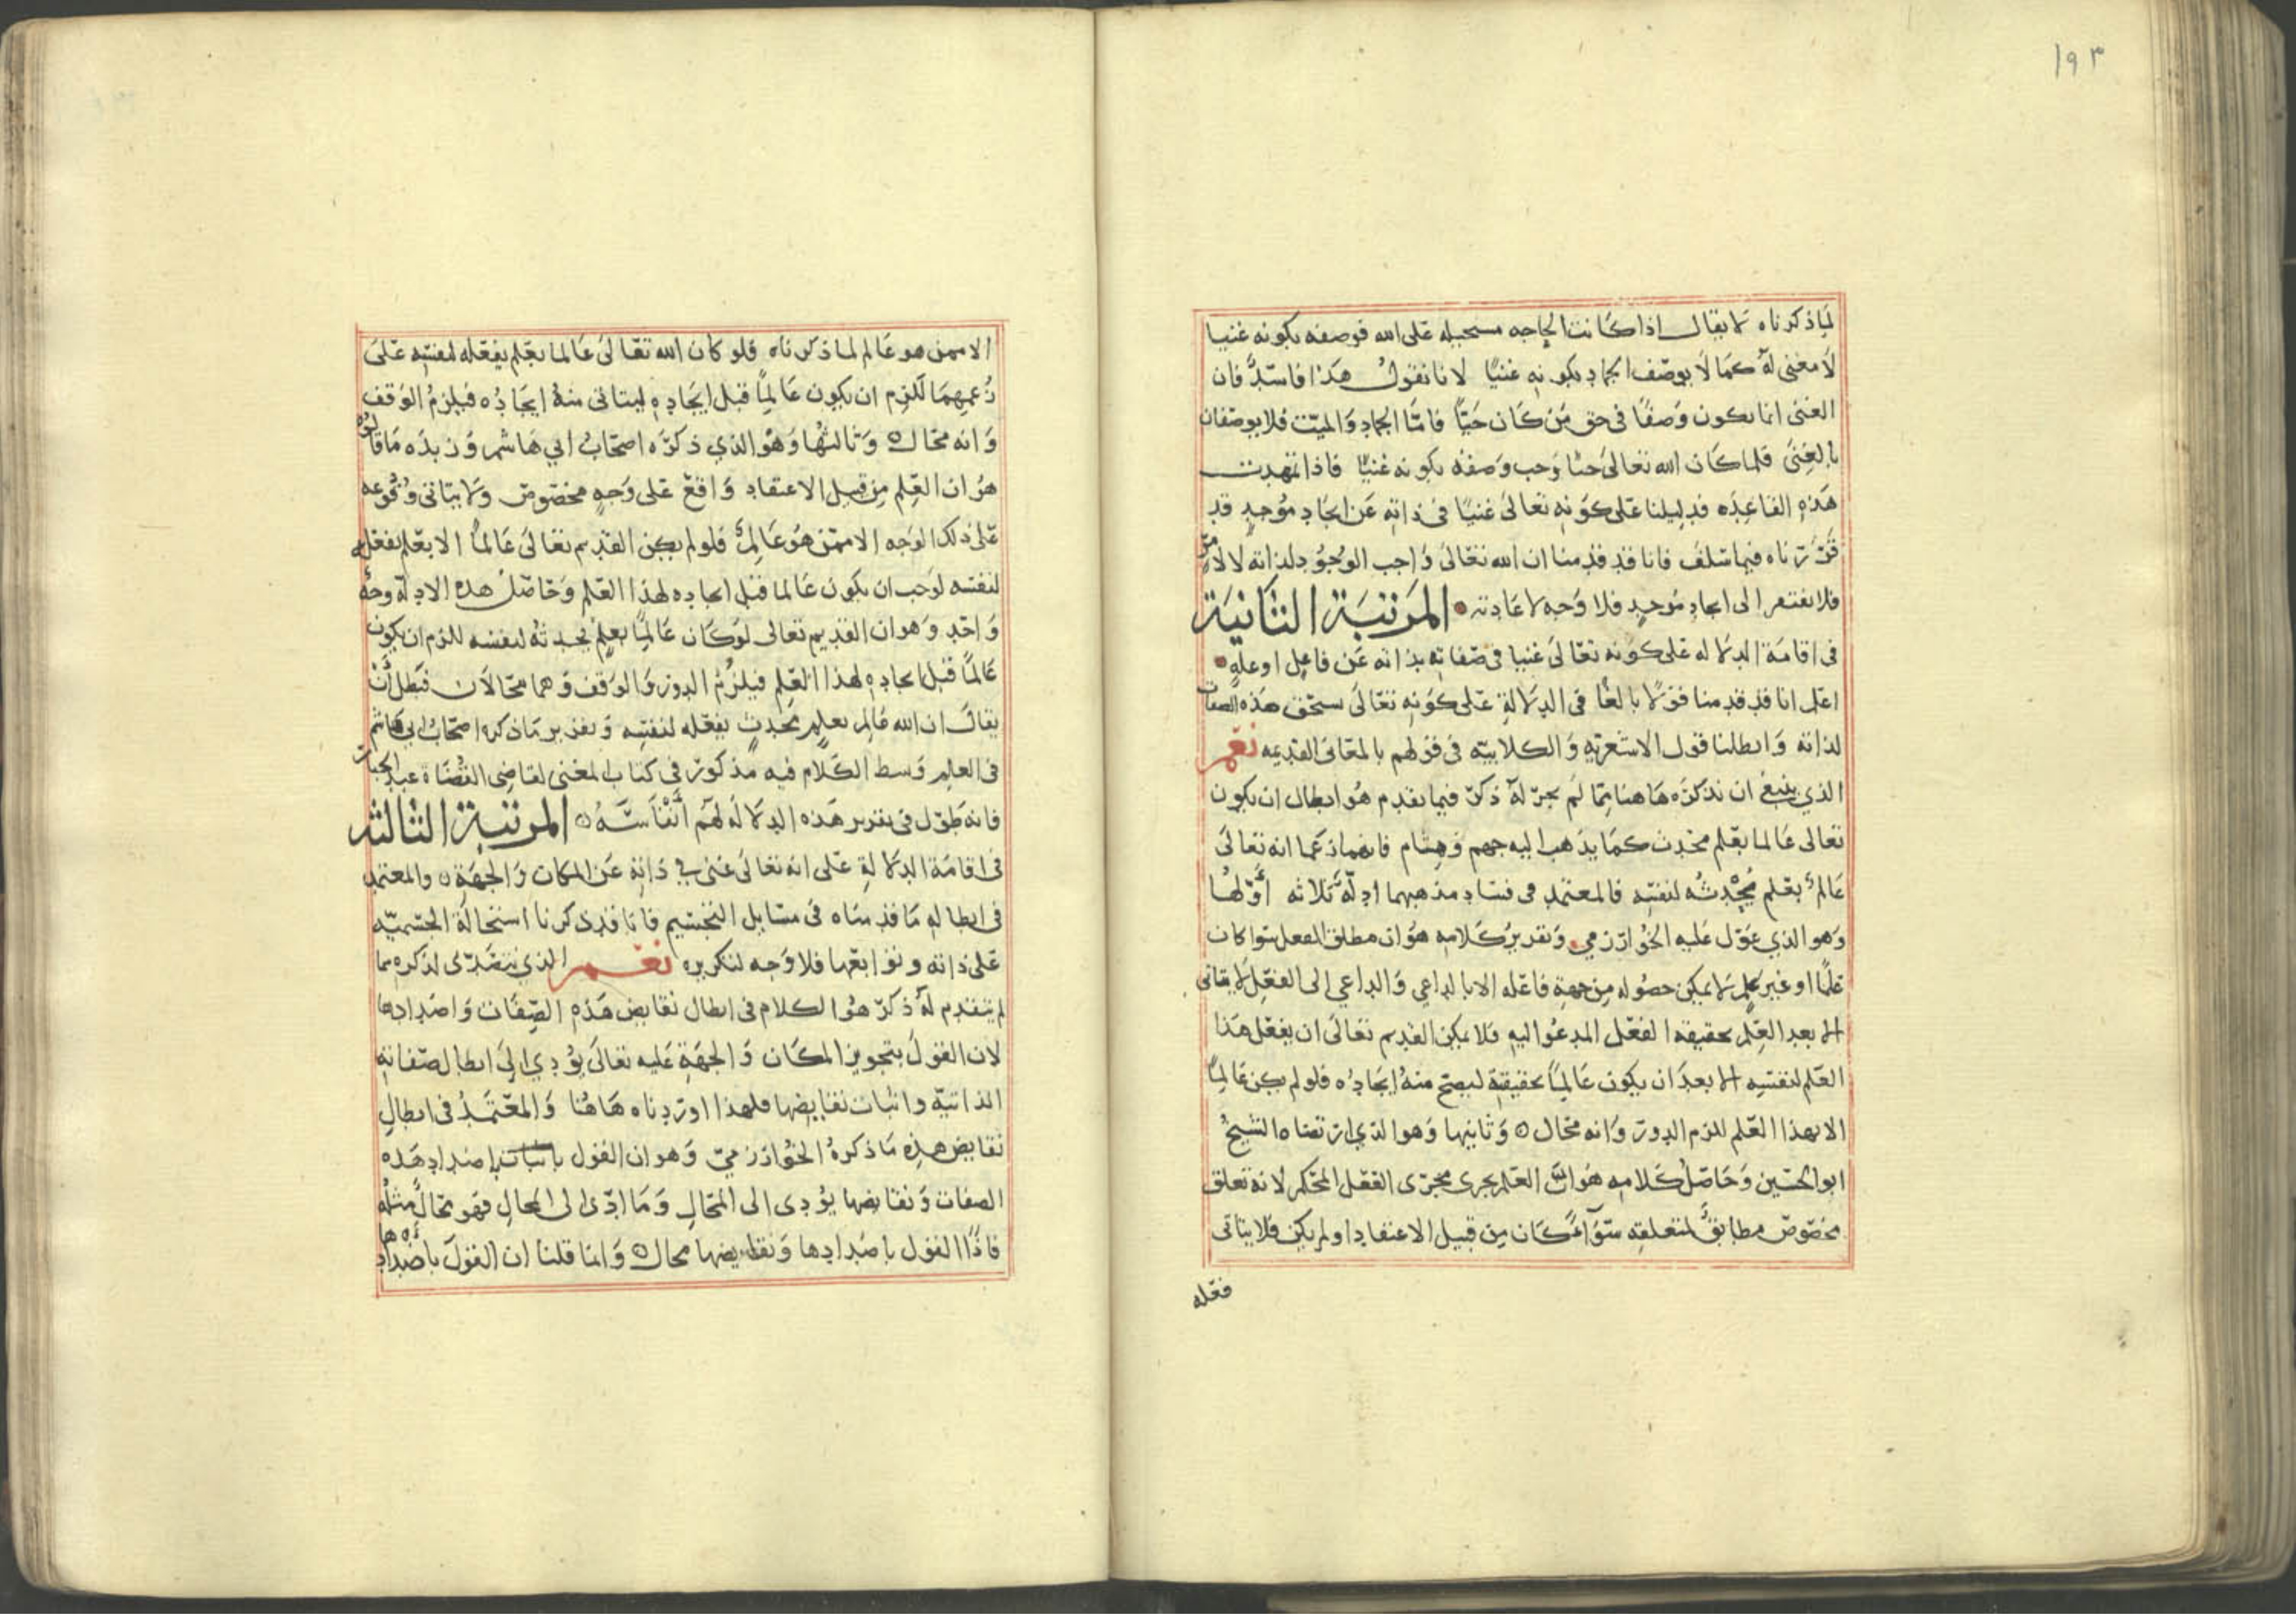 ١٩٣
لما ذكرناه لا يقال اذا كانت الحاجه مستحيله على الله فوصفه بكونه غنيا
لا معنى له كما لا يوصف الجماد بكونه غنيًا لانا نقول هذا فاسد فان
الغنى انما يكون وصفًا في حق من كان حيًا فامّا الجماد والميت فلا يوصفان
بالغنى فلما كان الله تعالى حيا وجب وصفه بكونه غنيًا فاذا تمهدت
هذه القاعده فدليلنا على كونه تعالى غنيًا في ذاته عن ايجاد موجدٍ قد
قررناه فيما سلف فانا قد قدمنا ان الله تعالى واجب الوجود لذاته لا لامرٍ
فلا يفتقر الى ايجاد موجدٍ فلا وجه لاعادته المرتبة الثانية
في اقامة الدلاله على كونه تعالى غنيا في صفاته بذاته عن فاعل او علهٍ
اعلم انا قد قدمنا قولا بالغًا في الدلالة على كونه تعالى يستحق هذه الصفات
لذاته وابطلنا قول الاشعريه والكلابيه في قولهم بالمعانى القديمه نعم
الذي ينبغى ان نذكره هاهنا مما لم يجر له ذكر فيما تقدم هو ابطال ان يكون
تعالى عالما بعلم محدث كما يذهب اليه جهم وهشام فانهما زعما انه تعالى
عالم بعلم يحدثه لنفسه فالمعتمد فى فساد مذهبهما ادلّه ثلاثه اولها
وهو الذي عوّل عليه الخوارزمي وتقدير كلامه هو ان مطلق الفعل سوا كان
علمًا او غير علم لا يمكن حصوله من جهة فاعله الا بالداعي والداعي الى الفعل لا يتاتى
الا بعد العلم بحقيقة الفعل المدعو اليه فلا يمكن القديم تعالى ان يفعل هذا
العلم لنفسه الا بعد ان يكون عالمًا بحقيقته ليصح منه ايجاده فلو لم يكن عالمًا
الا بهذا العلم للزم الدور وانه محال ٥ وثانيها وهو الذي ارتضاه الشيخ
ابو الحسين وحاصل كلامه هو ان العلم يجرى مجرى الفعل المحكم لانه تعلق
مخصوص مطابق لمتعلقه سوآءً كان من قبيل الاعتقاد او لم يكن فلا يتاتى
فعله
الا ممن هو عالم لما ذكرناه فلو كان الله تعالى عالما بعلم يفعله لنفسه على
زعمهما للزم ان يكون عالمًا قبل ايجاده ليتاتى منه ايجاده فيلزم الوقف
وانه محال ٥ وثالثها وهو الذي ذكره اصحاب ابي هاشم وزبده ما قالوه
هو ان العلم من قبيل الاعتقاد واقع على وجهٍ مخصوص ولا يتاتى وقوعه
على ذلك الوجه الا ممن هو عالم فلو لم يكن القديم تعالى عالمًا الا بعلم يفعله
لنفسه لوجب ان يكون عالما قبل ايجاده لهذا العلم وحاصل هذه الادلة وجه
واحد وهو ان القديم تعالى لو كان عالمًا بعلمٍ يحدثه لنفسه للزم ان يكون
عالمًا قبل ايجاده لهذا العلم فيلزم الدور والوقف وهما محالان فبطل أن
يقال ان الله عالم بعلمٍ محدثٍ يفعله لنفسه وتقدير ما ذكره اصحاب ابي هاشم
في العلم وبسط الكلام فيه مذكور في كتاب المغنى لقاضى القضاة عبد الجبار
فانه طوّل في تقرير هذه الدلاله لهم أنفاسه ٥ المرتبة الثالثة
في اقامة الدلالة على انه تعالى غنى في ذاته عن المكان والجهة ٥ والمعتمد
في ابطاله ما قدمناه في مسايل التجسيم فانا قد ذكرنا استحالة الجسميّه
على ذاته وتوابعها فلا وجه لتكريره نعم الذي نتصدى لذكره مما
لم يتقدم له ذكر هو الكلام في ابطال نقايض هذه الصفات واضدادها
لان القول بتجويز المكان والجهة عليه تعالى يؤدي الى ابطال صفاته
الذاتيه واثبات نقايضها فلهذا اوردناه هاهنا والمعتمد في ابطال
نقايض هذه ما ذكره الخوارزميّ وهو ان القول باثبات اضداد هذه
الصفات ونقايضها يؤدى الى المحال وما ادّى الى المحال فهو محال مثله
فاذًا القول باضدادها ونقايضها محال ٥ وانما قلنا ان القول باضدادها